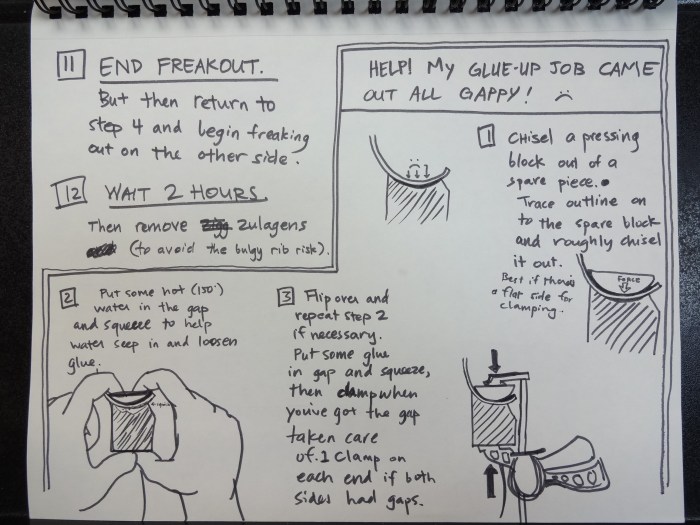 11 END FREAKOUT.
But then return to
step 4 and begin freaking
out on the other side.
12 WAIT 2 HOURS
Then remove zulagens
(to avoid the bulgy rib risk).
HELP! MY GLUE-UP JOB CAME
OUT ALL GAPPY! :(
1 CHISEL a pressing
block out of a
spare piece.
Trace outline on
to the spare block
and roughly chisel
it out.
Best if there's
a flat side for
clamping.
FORCE
2 Put some hot (150°)
water in the gap
and squeeze to help
water seep in and loosen
glue.
3 Flip over and
repeat step 2
if necessary.
Put some glue
in gap and squeeze,
then clamp when
you've got the gap
taken care
of. 1 clamp on
each end if both
sides had gaps.